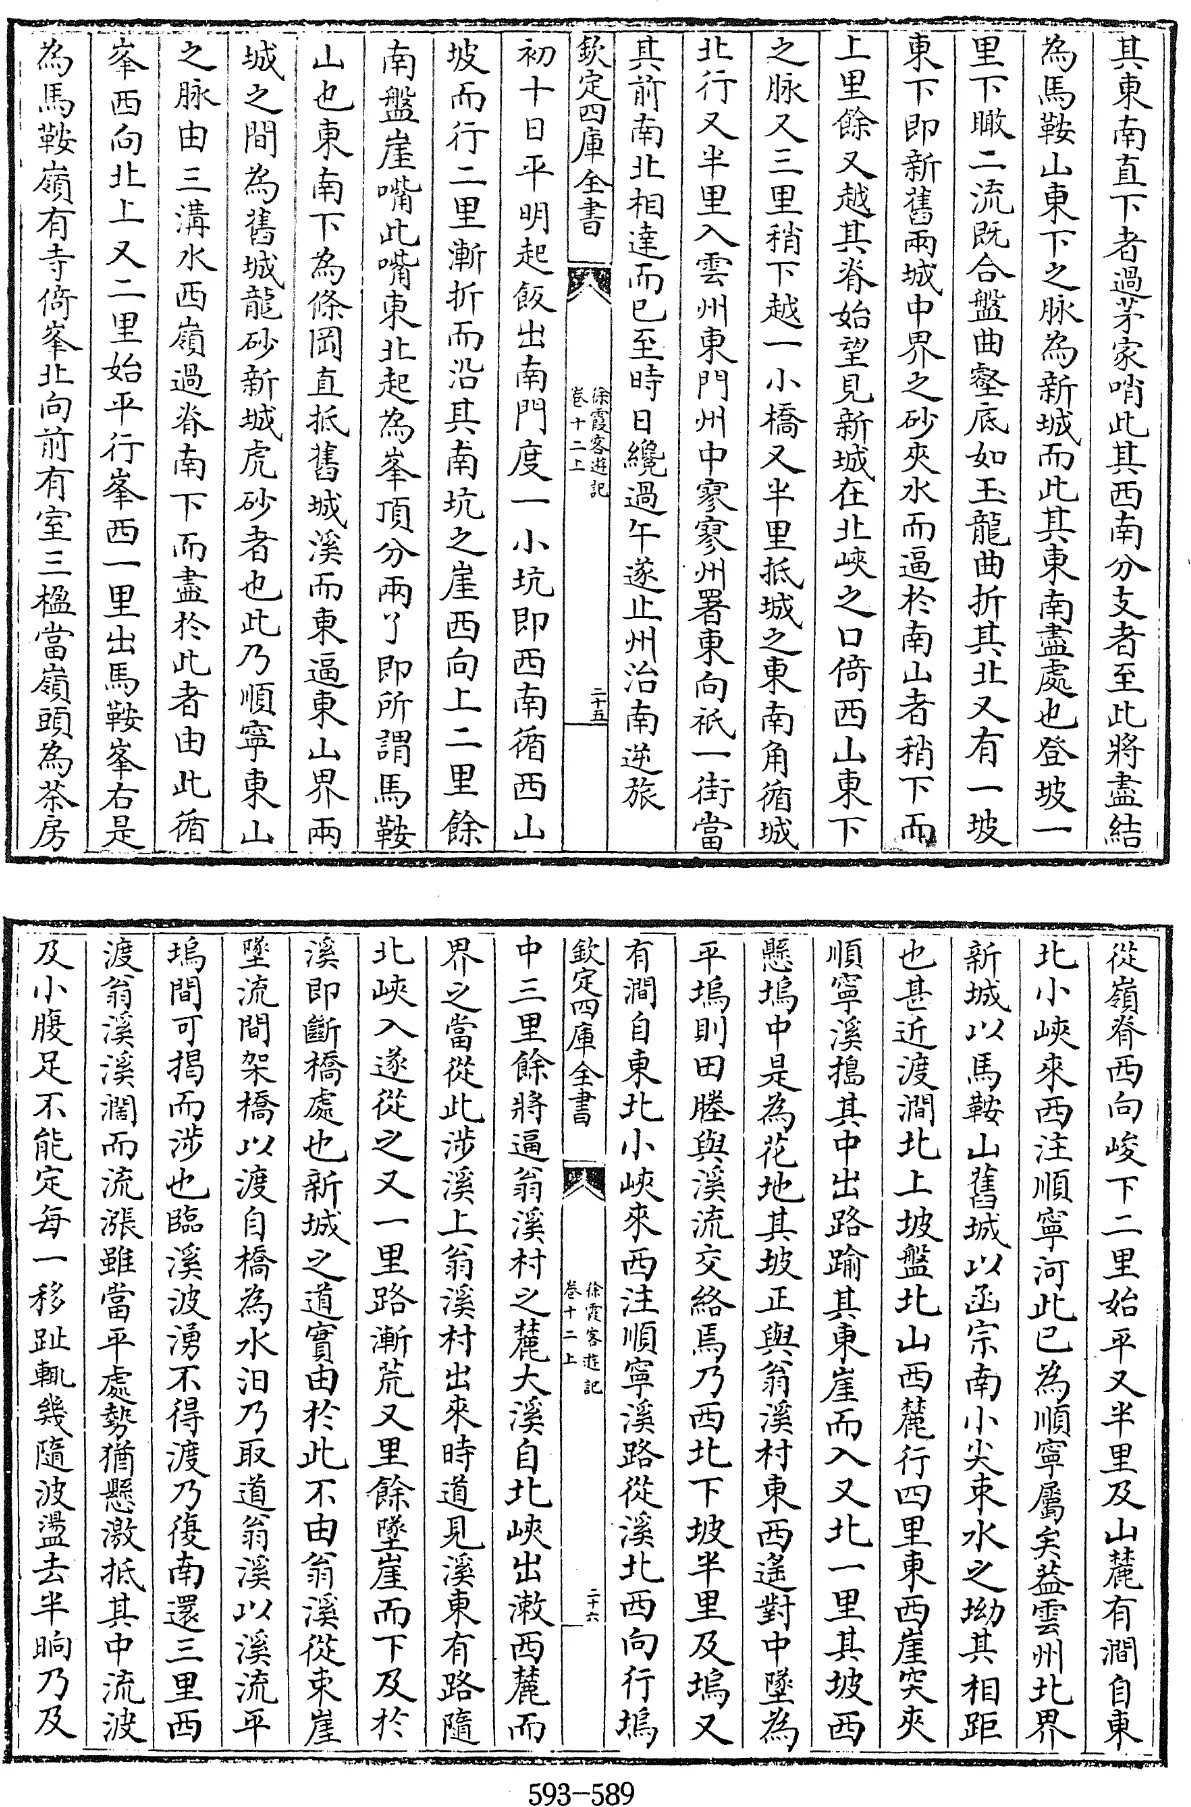 其東南直下者過茅家哨此其西南分支者至此將盡結
為馬鞍山東下之脉為新城而此其東南盡處也登坡一
里下瞰二流既合盤曲壑底如玉龍曲折其北又有一坡
東下即新舊兩城中界之砂夾水而逼於南山者稍下而
上里餘又越其脊始望見新城在北峽之口倚西山東下
之脉又三里稍下越一小橋又半里抵城之東南角循城
北行又半里入雲州東門州中寥寥州署東向祇一街當
其前南北相達而已至時日纔過午遂止州治南逆旅
欽定四庫全書
徐霞客遊記
卷十二上
二十五
初十日平明起飯出南門度一小坑即西南循西山
坡而行二里漸折而沿其南坑之崖西向上二里餘
南盤崖嘴此嘴東北起為峯頂分兩丫即所謂馬鞍
山也東南下為條岡直抵舊城溪而東逼東山界兩
城之間為舊城龍砂新城虎砂者也此乃順寧東山
之脉由三溝水西嶺過脊南下而盡於此者由此循
峯西向北上又二里始平行峯西一里出馬鞍峯右是
為馬鞍嶺有寺倚峯北向前有室三楹當嶺頭為茶房
從嶺脊西向峻下二里始平又半里及山麓有澗自東
北小峽來西注順寧河此已為順寧屬矣葢雲州北界
新城以馬鞍山舊城以函宗南小尖束水之坳其相距
也甚近渡澗北上坡盤北山西麓行四里東西崖突夾
順寧溪搗其中出路踰其東崖而入又北一里其坡西
懸塢中是為花地其坡正與翁溪村東西遙對中墜為
平塢則田塍與溪流交絡焉乃西北下坡半里及塢又
有澗自東北小峽來西注順寧溪路從溪北西向行塢
欽定四庫全書
徐霞客遊記
卷十二上
二十六
中三里餘將逼翁溪村之麓大溪自北峽出漱西麓而
界之當從此涉溪上翁溪村出來時道見溪東有路隨
北峽入遂從之又一里路漸荒又里餘墜崖而下及於
溪即斷橋處也新城之道實由於此不由翁溪從東崖
墜流間架橋以渡自橋為水汨乃取道翁溪以溪流平
塢間可揭而涉也臨溪波湧不得渡乃復南還三里西
渡翁溪溪濶而流漲雖當平處勢猶懸激抵其中流波
及小腹足不能定每一移趾輒幾隨波盪去半晌乃及
593-589